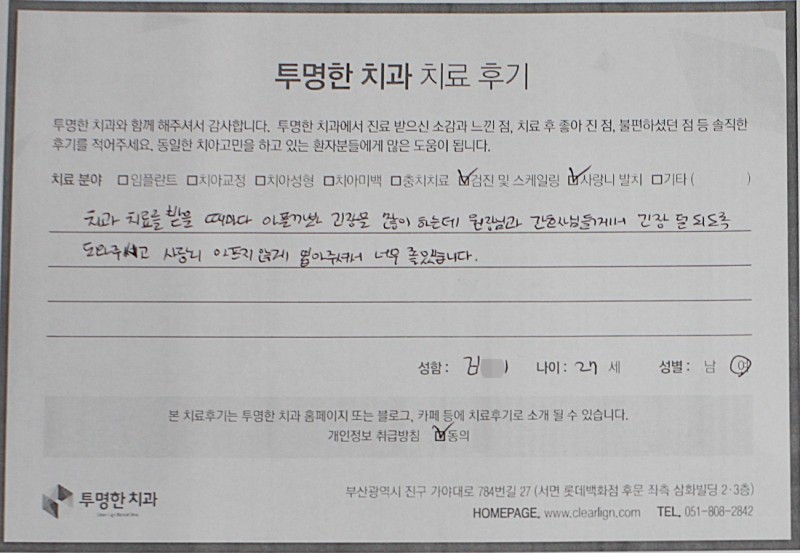 투명한 치과 치료 후기
투명한 치과와 함께 해주셔서 감사합니다. 투명한 치과에서 진료 받으신 소감과 느낀 점, 치료 후 좋아 진 점, 불편하셨던 점 등 솔직한
후기를 적어주세요. 동일한 치아고민을 하고 있는 환자분들에게 많은 도움이 됩니다.
치료 분야 □임플란트 □치아교정 □치아성형 □치아미백 □충치치료 ☑검진 및 스케일링 ☑사랑니 발치 □기타 ( )
치과 치료를 받을 때마다 아플까봐 긴장을 많이 하는데 원장님과 간호사님들께서 긴장 덜 되도록
도와주시고 사랑니 아프지 않게 뽑아주셔서 너무 좋았습니다.
성함 : 김 나이 : 27 세 성별 : 남 여
본 치료후기는 투명한 치과 홈페이지 또는 블로그, 카페 등에 치료후기로 소개 될 수 있습니다.
개인정보 취급방침 ☑동의
투명한 치과
부산광역시 진구 가야대로 784번길 27 (서면 롯데백화점 후문 좌측 삼화빌딩 2·3층)
HOMEPAGE. www.clearlign.com TEL. 051-808-2842